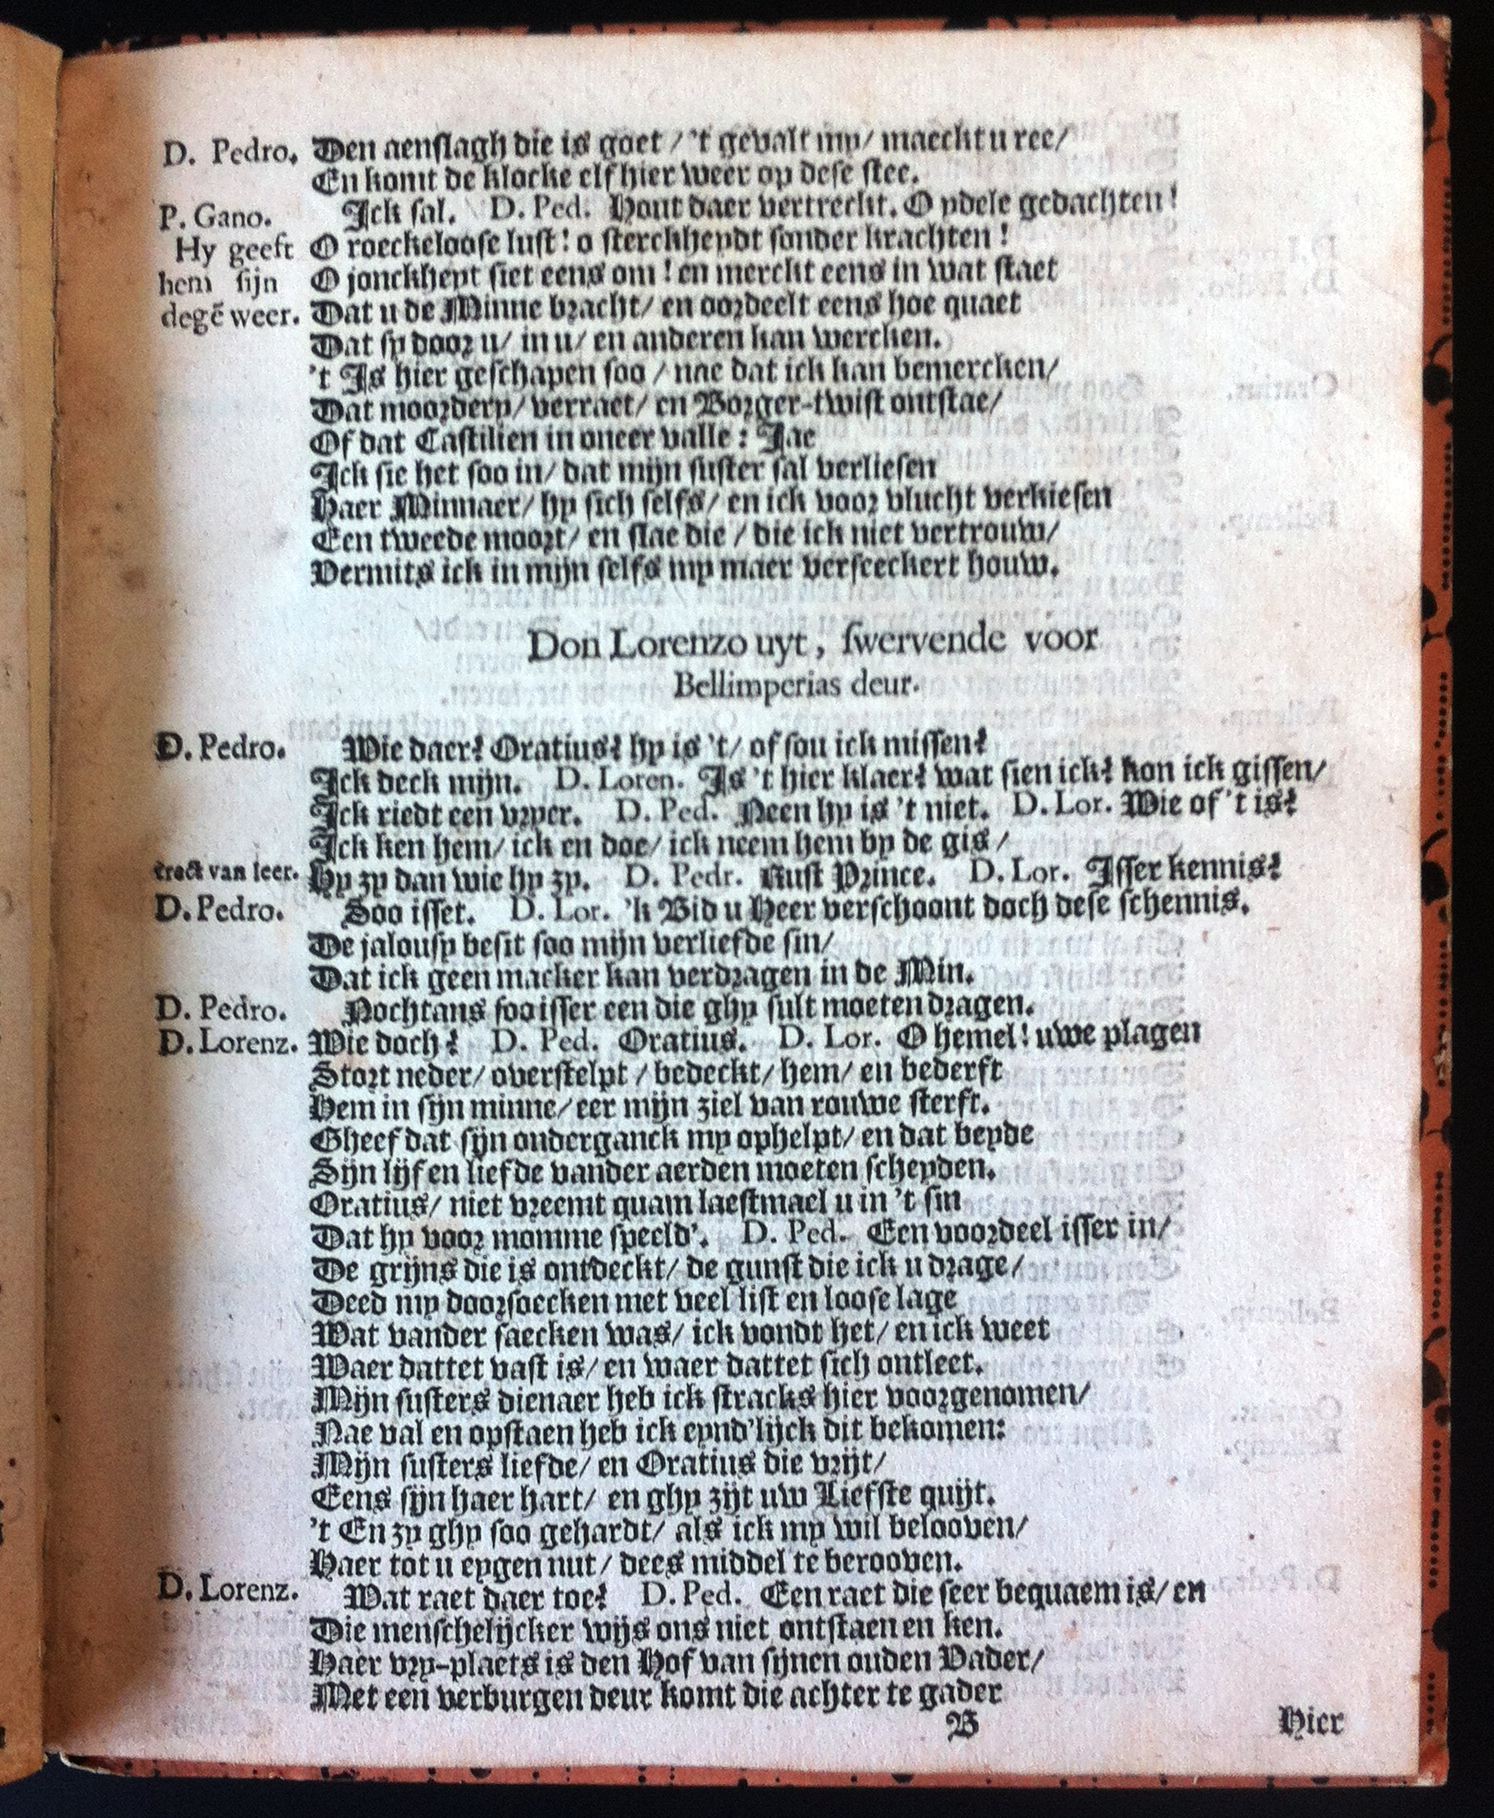 D. Pedro. Den aenslagh die is goet / 't gevalt my / maeckt u ree /
En komt de klocke elf hier weer op dese stee.
P. Gano. Ick sal. D. Ped. Hout daer vertreckt. O ydele gedachten!
Hy geeft O roeckeloose lust! o sterckheydt sonder krachten!
hem sijn O jonckheyt siet eens om! en merckt eens in wat staet
degē weer. Dat u de Minne bracht / en oordeelt eens hoe quaet
Dat sy door u / in u / en anderen kan wercken.
't Is hier geschapen soo / nae dat ick kan bemercken /
Dat moordery / verraet / en Borger-twist ontstae /
Of dat Castilien in oneer valle: Jae
Ick sie het soo in / dat mijn suster sal verliesen
Haer Minnaer / hy sich selfs / en ick voor vlucht verkiesen
Een tweede moort / en slae die / die ick niet vertrouw /
Vermits ick in mijn selfs my maer verseeckert houw.
Don Lorenzo uyt, swervende voor
Bellimperias deur.
D. Pedro. Wie daer? Oratius? hy is 't / of sou ick missen?
Ick deck mijn. D. Loren. Is 't hier klaer? wat sien ick? kon ick gissen /
Ick riedt een vryer. D. Ped. Neen hy is 't niet. D. Lor. Wie of 't is?
Ick ken hem / ick en doe / ick neem hem by de gis /
treckt van leer. Hy zy dan wie hy zy. D. Pedr. Rust Prince. D. Lor. Isser kennis?
D. Pedro. Soo isset. D. Lor. 'k Bid u Heer verschoont doch dese schennis.
De jalousy besit soo mijn verliefde sin /
Dat ick geen macker kan verdragen in de Min.
D. Pedro. Nochtans soo isser een die ghy sult moeten dragen.
D. Lorenz. Wie doch? D. Ped. Oratius. D. Lor. O hemel! uwe plagen
Stort neder / overstelpt / bedeckt / hem / en bederft
Hem in sijn minne / eer mijn ziel van rouwe sterft.
Gheef dat sijn onderganck my ophelpt / en dat beyde
Sijn lijf en liefde vander aerden moeten scheyden.
Oratius / niet vreemt quam laestmael u in 't sin
Dat hy voor momme speeld'. D. Ped. Een voordeel isser in /
De grijns die is ontdeckt / de gunst die ick u drage /
Deed my doorsoecken met veel list en loose lage
Wat vander saecken was / ick vondt het / en ick weet
Waer dattet vast is / en waer dattet sich ontleet.
Mijn susters dienaer heb ick stracks hier voorgenomen /
Nae val en opstaen heb ick eynd'lijck dit bekomen:
Mijn susters liefde / en Oratius die vrijt /
Eens sijn haer hart / en ghy zijt uw Liefste quijt.
't En zy ghy soo gehardt / als ick my wil belooven /
Haer tot u eygen nut / dees middel te berooven.
D. Lorenz. Wat raet daer toe? D. Ped. Een raet die seer bequaem is / en
Die menschelijcker wijs ons niet ontstaen en ken.
Haer vry-plaets is den Hof van sijnen ouden Vader /
Met een verburgen deur komt die achter te gader
B Hier